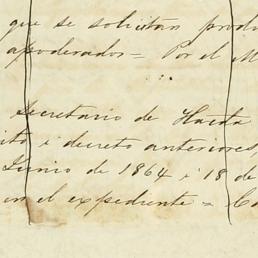 que se solicitan produ
apoderados = Por el M
Secretario de Hacta
ito i decreto anteriores,
Junio de 1864 i 18 de
en el expediente = Co